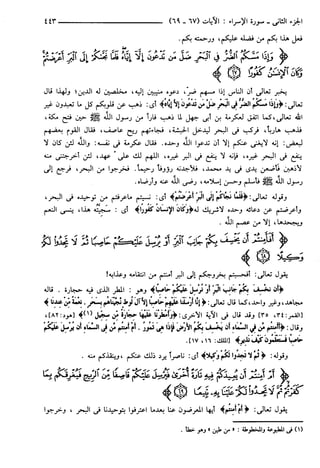 الجزء الثاني - سورة الإسراء : الآيات (٦٧ - ٦٩) ــــــــــــ ٤٤٣
فعل هذا بكم من فضله عليكم، ورحمته بكم.
﴿ وَإِذَا مَسَّكُمُ الضُّرُّ فِي الْبَحْرِ ضَلَّ مَن تَدْعُونَ إِلَّا إِيَّاهُ فَلَمَّا نَجَّاكُمْ إِلَى الْبَرِّ أَعْرَضْتُمْ
وَكَانَ الْإِنسَانُ كَفُورًا ﴿٦٧﴾ ﴾
يخبر تعالى أن الناس إذا مسهم ضر، دعوه منيبين إليه، مخلصين له الدين؛ ولهذا قال
تعالى: ﴿وَإِذَا مَسَّكُمُ الضُّرُّ فِي الْبَحْرِ ضَلَّ مَن تَدْعُونَ إِلَّا إِيَّاهُ﴾ أي: ذهب عن قلوبكم كل ما تعبدون غير
الله تعالى، كما اتفق لعكرمة بن أبي جهل لما ذهب فاراً من رسول الله ﷺ حين فتح مكة،
فذهب هارباً، فركب في البحر ليدخل الحبشة، فجاءتهم ريح عاصف، فقال القوم بعضهم
لبعض: إنه لا يغني عنكم إلا أن تدعوا الله وحده. فقال عكرمة في نفسه: والله لئن كان لا
ينفع في البحر غيره، فإنه لا ينفع في البر غيره، اللهم لك علي عهد، لئن أخرجتني منه
لأذهبن فأضعن يدي في يد محمد، فلأجدنه رؤوفاً رحيماً. فخرجوا من البحر، فرجع إلى
رسول الله ﷺ فأسلم وحسن إسلامه، رضي الله عنه وأرضاه.
وقوله تعالى: ﴿فَلَمَّا نَجَّاكُمْ إِلَى الْبَرِّ أَعْرَضْتُمْ﴾ أي: نسيتم ما عرفتم من توحيده في البحر،
وأعرضتم عن دعائه وحده لا شريك له ﴿وَكَانَ الْإِنسَانُ كَفُورًا﴾ أي: سجيته هذا، ينسى النعم
ويجحدها، إلا من عصم الله.
﴿ أَفَأَمِنتُمْ أَن يَخْسِفَ بِكُمْ جَانِبَ الْبَرِّ أَوْ يُرْسِلَ عَلَيْكُمْ حَاصِبًا ثُمَّ لَا تَجِدُوا لَكُمْ
وَكِيلًا ﴿٦٨﴾ ﴾
يقول تعالى: أفحسبتم بخروجكم إلى البر أمنتم من انتقامه وعذابه؟
﴿أَن يَخْسِفَ بِكُمْ جَانِبَ الْبَرِّ أَوْ يُرْسِلَ عَلَيْكُمْ حَاصِبًا﴾ وهو: المطر الذي فيه حجارة. قاله
مجاهد، وغير واحد، كما قال تعالى: ﴿إِنَّا أَرْسَلْنَا عَلَيْهِمْ حَاصِبًا إِلَّا آلَ لُوطٍ نَّجَّيْنَاهُم بِسَحَرٍ. نِعْمَةً مِّنْ عِندِنَا﴾
[القمر: ٣٤، ٣٥] وقد قال في الآية الأخرى: ﴿وَأَمْطَرْنَا عَلَيْهَا حِجَارَةً مِّن سِجِّيلٍ (١)﴾ [هود: ٨٢]،
وقال: ﴿أَأَمِنتُم مَّن فِي السَّمَاءِ أَن يَخْسِفَ بِكُمُ الْأَرْضَ فَإِذَا هِيَ تَمُورُ. أَمْ أَمِنتُم مَّن فِي السَّمَاءِ أَن يُرْسِلَ عَلَيْكُمْ
حَاصِبًا فَسَتَعْلَمُونَ كَيْفَ نَذِيرِ﴾ [الملك: ١٦، ١٧].
وقوله: ﴿ثُمَّ لَا تَجِدُوا لَكُمْ وَكِيلًا﴾ أي: ناصراً يرد ذلك عنكم، وينقذكم منه.
﴿ أَمْ أَمِنتُمْ أَن يُعِيدَكُمْ فِيهِ تَارَةً أُخْرَى فَيُرْسِلَ عَلَيْكُمْ قَاصِفًا مِّنَ الرِّيحِ فَيُغْرِقَكُم بِمَا
كَفَرْتُمْ ثُمَّ لَا تَجِدُوا لَكُمْ عَلَيْنَا بِهِ تَبِيعًا ﴿٦٩﴾ ﴾
يقول تعالى: ﴿أَمْ أَمِنتُمْ﴾ أيها المعرضون عنا بعدما اعترفوا بتوحيدنا في البحر، وخرجوا
(١) في المطبوعة والمخطوطة: «من طين» وهو خطأ.